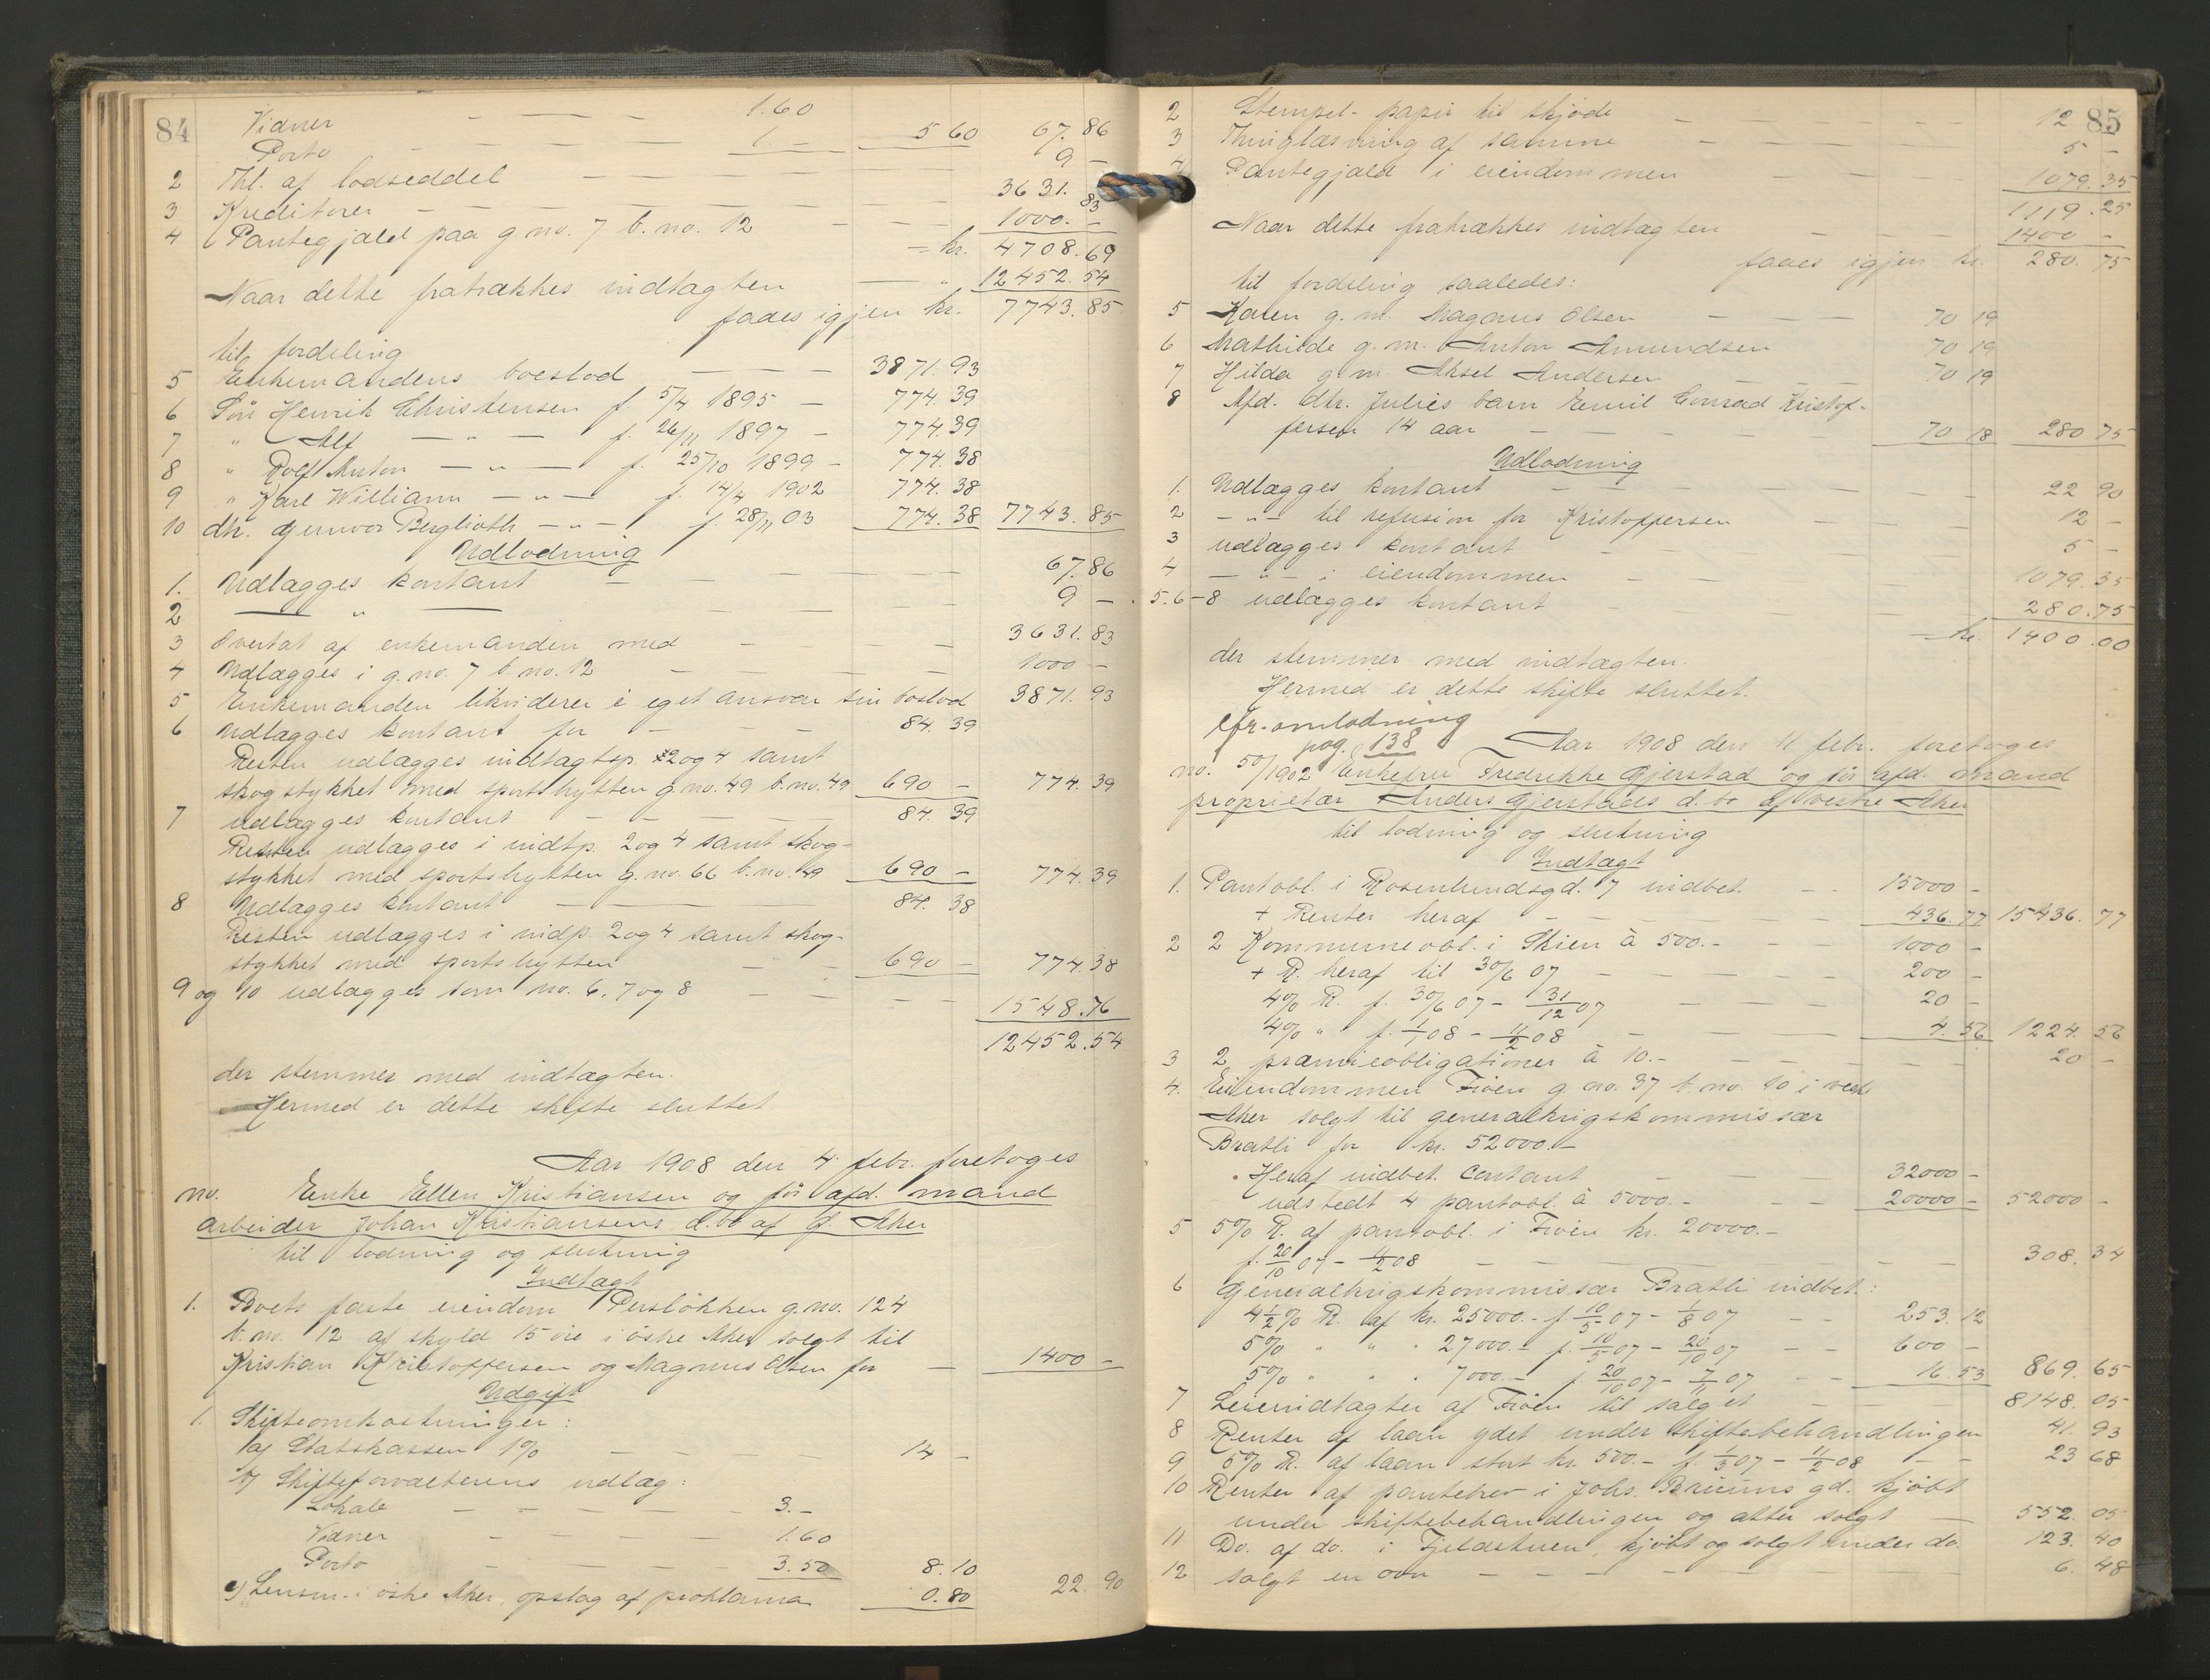 84
Vidner — — — — 1.60
Porto — — — — 1.— 5 60 67.86
2 Thl. af lodseddel — — — — 9 —
3 Kreditorer — — — — 3631.83
4 Pantegjæld paa g.no. 7 b.no. 12 — — 1000.—
= kr. 4708.69
Naar dette fratrækkes indtægten — " 12452.54
faaes igjen kr. 7743.85
til fordeling
5 Enkemandens boeslod — — — 3871.93
6 Sön Henrik Christensen f. 5/4 1895 — 774.39
7 " Alf — " — f. 26/11 1897 — 774.39
8 " Rolf Anton — " — f. 25/10 1899 — 774.38
9 " Karl William — " — f. 14/4 1902 774.38
10 dtr. Gunvor Berglioth — " — f. 28/11 03 774.38 7743.85
Udlodning
1. Udlægges kontant — — — — 67.86
2 — " — — — — 9 —
3 Overtat af enkemanden med — — — 3631.83
4 Udlægges i g.no. 7 b.no. 12 — — — 1000 —
5 Enkemanden likviderer i eget ansvar sin boslod 3871.93
6 Udlægges kontant for — — — 84.39
Resten udlægges indtagtsp. 2 og 4 samt
skogstykket med sportshytten g.no. 49 b.no. 49 690 — 774.39
7 udlægges kontant — — — — 84.39
Resten udlægges i indtp. 2 og 4 samt skog-
stykket med sportshytten g.no. 66 b.no. 49 690 — 774.39
8 Udlægges kontant — — — 84.38
Resten udlægges i indp. 2 og 4 samt skog-
stykket med sportshytten — — 690 — 774.38
9 og 10 udlægges som no. 6, 7 og 8 — — — 1548.76
12452.54
der stemmer med indtægten.
Hermed er dette skifte sluttet
Aar 1908 den 4 febr. foretoges
no. Enke Ellen Kristiansen og før afd. mand
arbeider Johan Kristiansens d.bo af Ø. Aker
til lodning og slutning
Indtægt
1. Boets faste eiendom Perslökken g.no. 124
b.no. 12 af skyld 15 øre i östre Aker solgt til
Kristian Kristoffersen og Magnus Olsen for — 1400 —
Udgift
1. Skifteomkostninger:
a) Statskassen 1% — — — 14 —
b) Skifteforvalterens udlæg:
Lokale — — — — 3.—
Vidner — — — — 1.60
Porto — — — — 3.50 8.10
c) Lensm. i östre Aker, opslag af proklama 0.80 22.90
85
2 Stempel-papir til skjöde — — — — 12
3 Thinglæsning af samme — — — — 5 —
4 Pantegjæld i eiendommen — — — 1079.35
1119.25
Naar dette fratrækkes indtægten — — — 1400 —
faaes igjen kr. 280.75
til fordeling saaledes:
5 Karen g.m. Magnus Olsen — — — 70 19
6 Mathilde g.m. Anton Amundsen 70 19
7 Hilda g.m. Aksel Andersen — — — 70 19
8 Afd. dtr. Julies barn Emil Conrad Kristof-
fersen 14 aar — — — — 70 18 280 75
Udlodning
1. Udlægges kontant — — — — 22 90
2 — " — til refusion for Kristoffersen — — 12 —
3 udlægges kontant — — — — 5 —
4 — " — i eiendommen — — — — 1079.35
5.6-8 udlægges kontant — — — — 280.75
= kr. 1400.00
der stemmer med indtægten.
Hermed er dette skifte sluttet.
cfr. omlodning
pag. 138
Aar 1908 den 11 febr. foretoges
no. 50/1902 Enkefru Fredrikke Gjerstad og før afd. mand
proprietær Anders Gjerstads d.bo af vestre Aker
til lodning og slutning
Indtægt
1. Pantobl. i Rosenlundsgd. 7 indbet. — — 15000 —
+ Renter heraf — — — — 436.77 15436.77
2 2 Kommuneobl. i Skien à 500.— — — 1000 —
+ R. heraf til 30/6 07 — — — — 200 —
4% R. f. 30/6 07 — 31/12 07 — — — 20 —
4% " f. 1/1 08 — 11/2 08 — — — 4.56 1224.56
3 2 præmieobligationer à 10.— — — — 20 —
4. Eiendommen Fröen g.no. 37 b.no. 10 i vestre
Aker solgt til generalkrigskommissær
Bratli for kr. 52000.—
Heraf indbet. contant — — — 32000 —
udstedt 4 pantobl. à 5000.— — — 20000 — 52000 —
5 5% R. af pantobl. i Fröen kr. 20000.—
f. 20/10 07 — 11/2 08 — — — — 308.34
6 Generalkrigskommissær Bratli indbet.:
4 1/2 % R. af kr. 25000.— f. 10/5 07 — 1/8 07 — — 253.12
5% " " " 27000.— f. 10/5 07 — 20/10 07 — — 600 —
5% " " " 7000.— f. 20/10 07 — 7/11 07 — — 16.53 869.65
7 Leieindtægter af Fröen til salget — — — 8148.05
8 Renter af laan ydet under skiftebehandlingen 41.93
9 5% R. af laan stort kr. 500.— f. 1/3 07 — 11/2 08 — — 23 68
10 Renter af pantebrev i Johs. Bruuns gd. kjöbt
under skiftebehandlingen og atter solgt — 552.05
11 Do. af do. i Fjeldstuen, kjöbt og solgt under do. 123.40
12 solgt en ovn — — — — 6.48